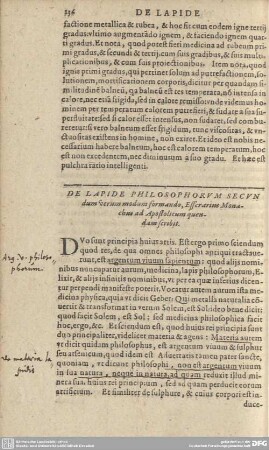 336 DE LAPIDE
factione metallica & rubea, & hoc sit cum eodem igne tertij
gradus, vltimo augmentãdo ignem, & faciendo ignem quar-
ti gradus. Et nota, quod potest fieri medicina ad rubeum pri-
mi gradus, & secundi & tertij, cum suis gradibus, & suis mul-
tiplicationibus, & cum suis proiectionibus. Item nota, quod
ignis primi gradus, qui pertinet solum ad putrefactionem, so-
lutionem, mortificationem corporis, dicitur per quandam si-
militudinē balneū, qa balneū est res temperata, nō intensa in
calore, nec etiã frigida, sed in calore
minem per temperatum calorem putrefieri, & sudare ad ba-
factus; si calor esset intensus, non sudaret, sed com bu-
reretur: si vero balneum esset frigidum, tunc viscositas, & vn-
ctuositas existens in homine, non exiret. Et ideo est nobis ne-
cessarium habere balneum, hoc est calorem temperatum, hoc
est non excedentem, nec diminuum à suo gradu. Et hæc est
pulchritas intelligenti.
DE LAPIDE PHILOSOPHORVM SECVN
dum verum modum formando, Efferarius Mona-
chus ad Apostolicum quen-
dam scribit.
DVo sunt principia huius artis. Est ergo primo sciendum
quod res, de qua omnes philosophi antiqui tractaue-
runt, est argentum viuum sapientum: quod alij nomi-
nibus nuncupatur aurum, medicina, lapis philosophorum, E-
lixir, & alijs infinitis nominibus, vt per ea quæ inferius dicen-
tur perpendi manifeste poterit. Vocatur autem aurum illa me-
dicina physica, quia vt dicit Geber: Qui metalla naturalia cõ-
uertit & transformat in verum Solem, est Sol: ideo bene dicit;
quod facit Solem, est Sol; sed medicina philosophica facit
hoc, ergo, &c. Et sciendum est, quod huius rei principia sunt
duo principaliter, videlicet materia & agens: Materia autem
vt dicit quidam philosophus, est argentum viuum & sulphur
seu arsenicum, quod idem est
quoniam, vt dicunt philosophi, non est argentum viuum
in sua natura, neque in natura, ad quam reducitur
minera sua, huius rei principium, sed ad quam perducit eorum
artificium. Et similiter de sulphure, & cuius corpus est in-
duce-